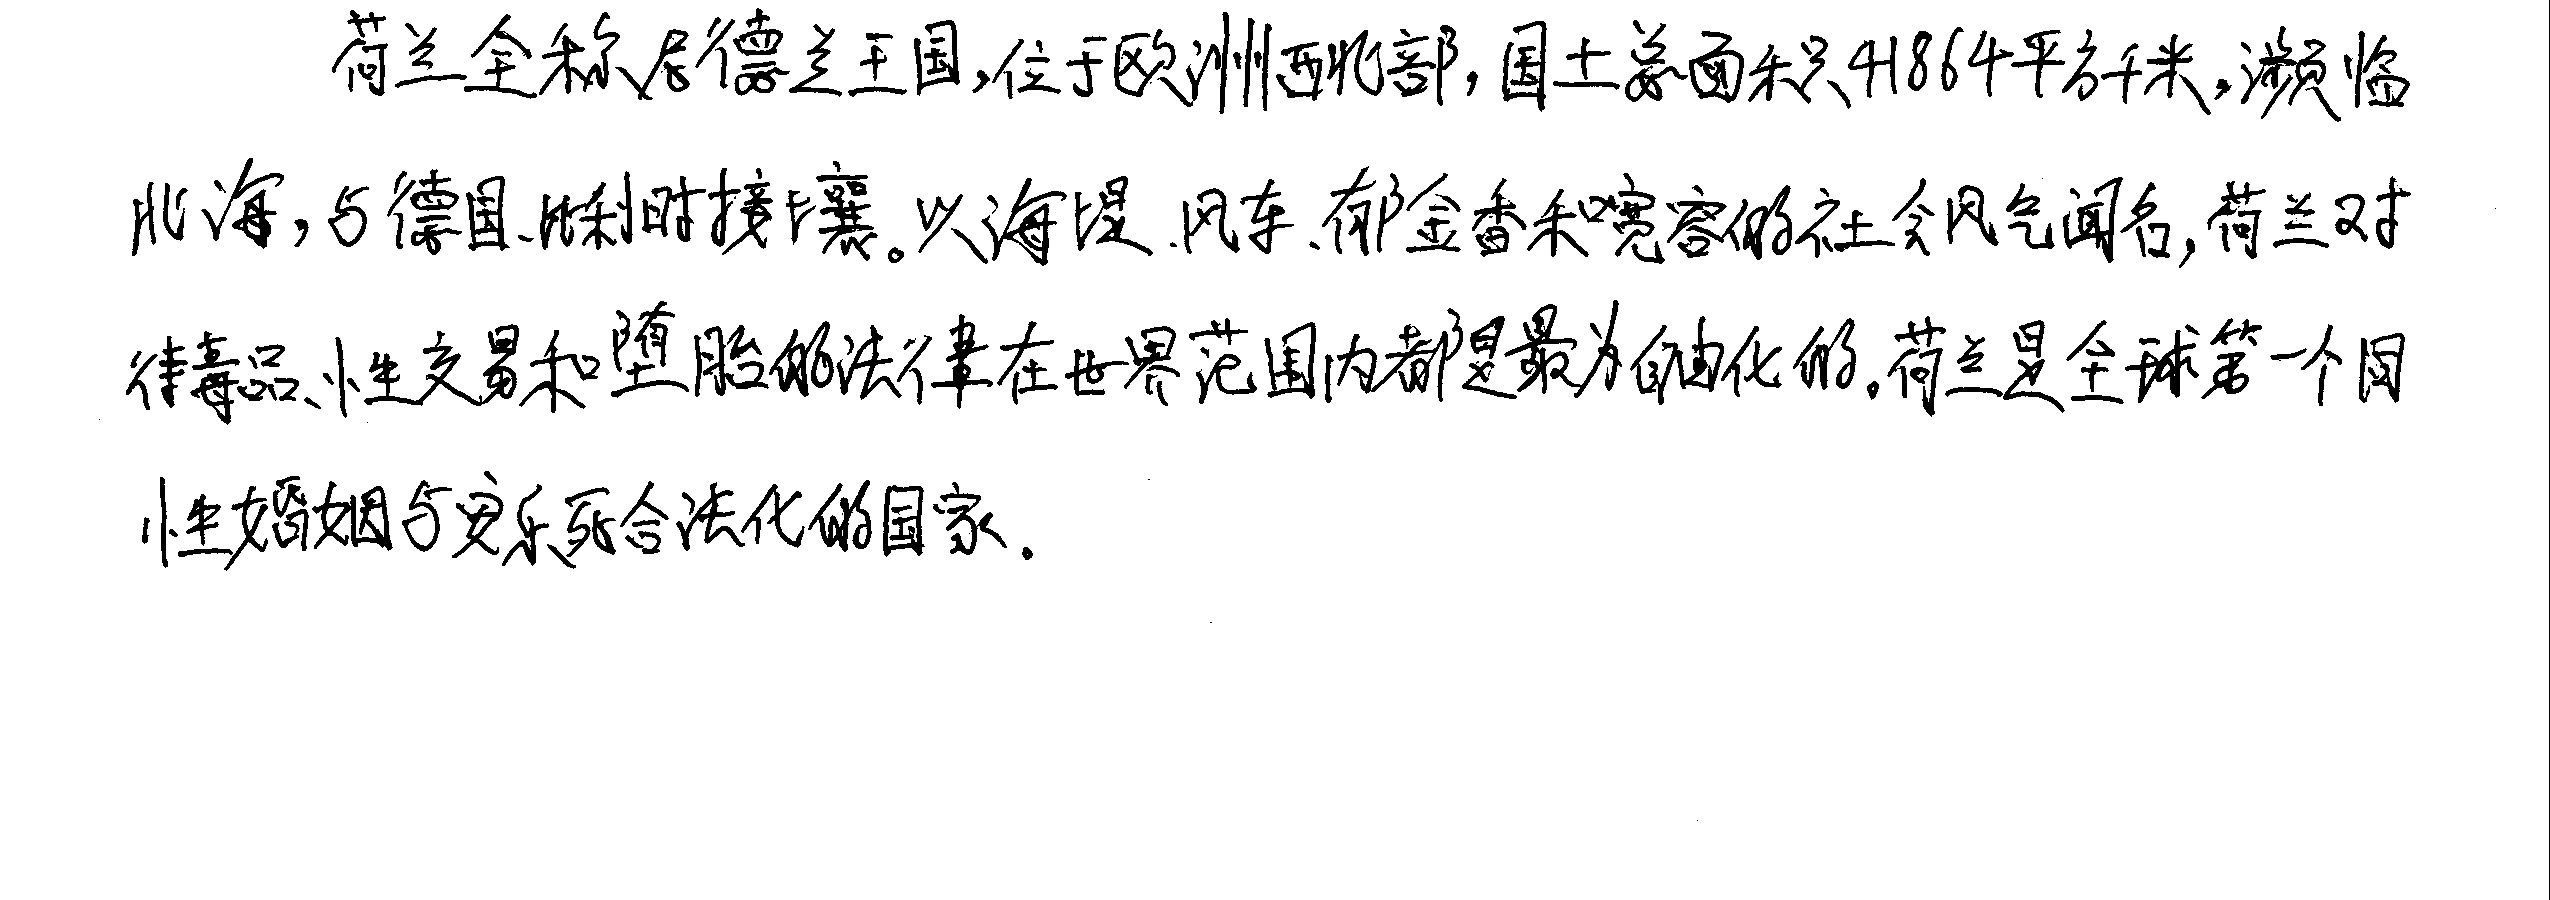 荷兰全称尼德兰王国,位于欧洲西北部,国土总面积只41864平方千米,濒临
北海,与德国、比利时接壤。以海堤、风车、郁金香和宽容的社会风气闻名,荷兰对
待毒品、性交易和堕胎的法律在世界范围内都是最为自由化的.荷兰是全球第一个同
性婚姻与安乐死合法化的国家.